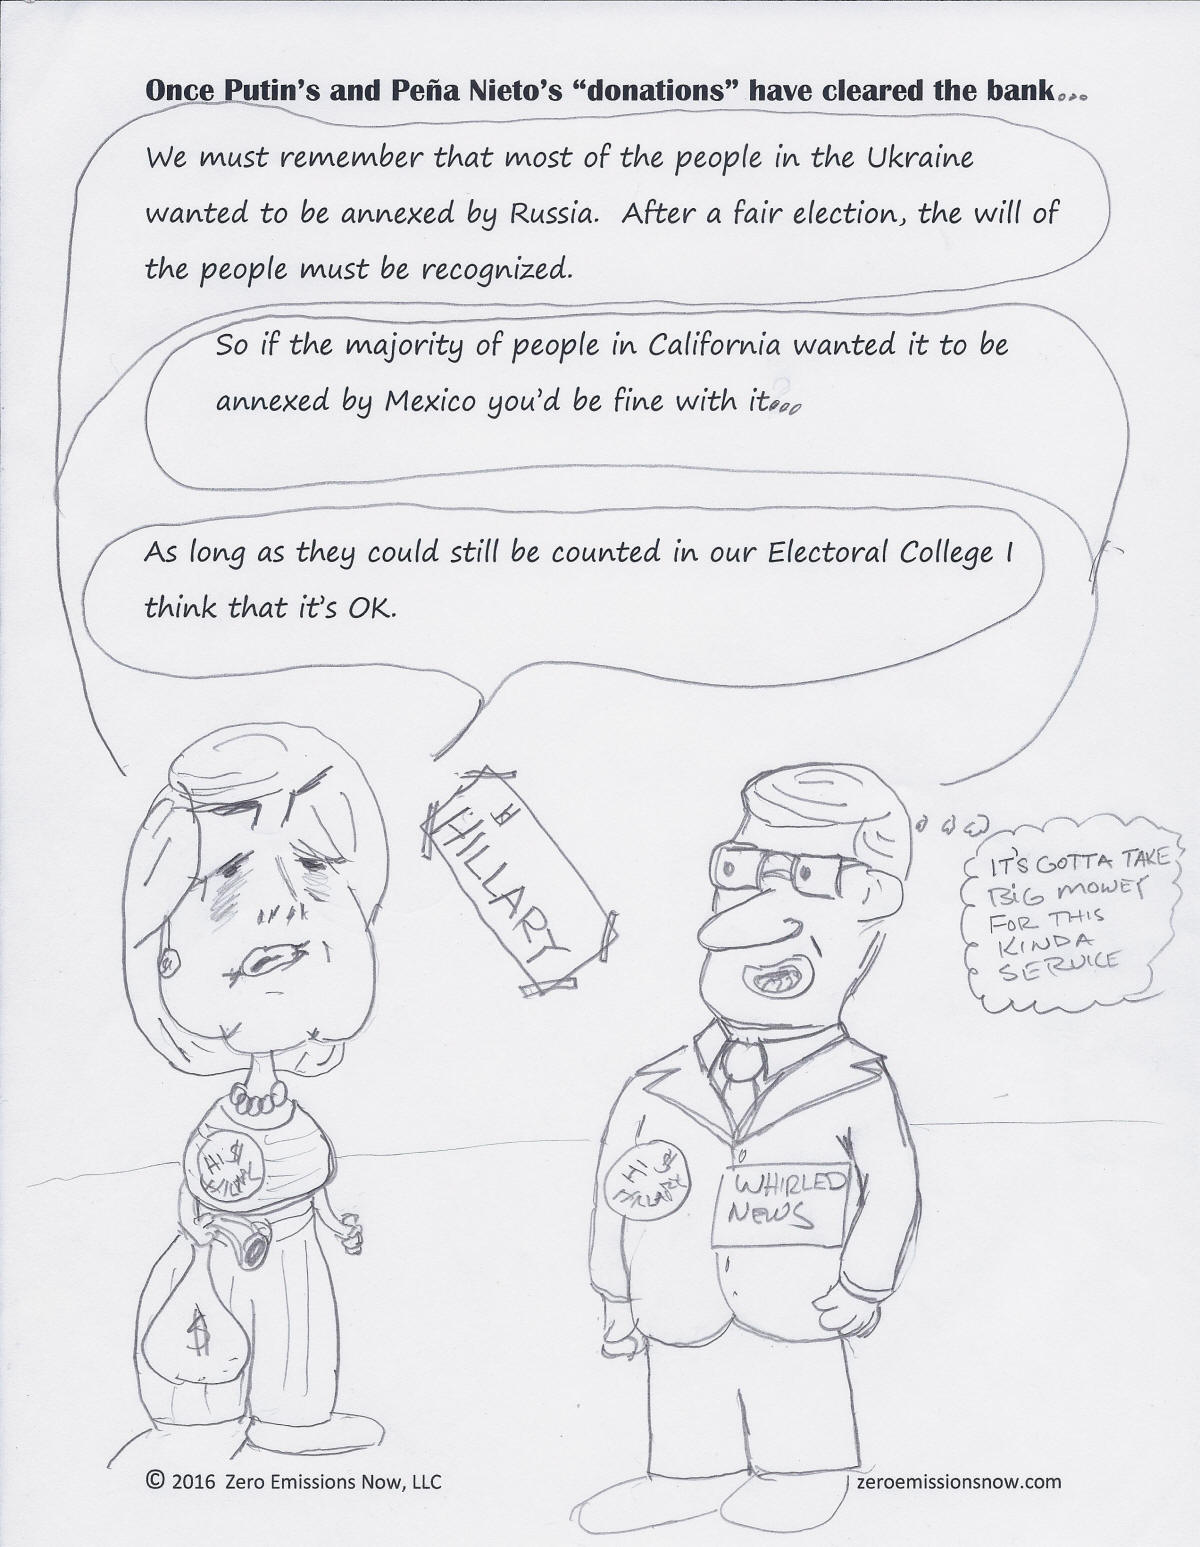 Once Putin's and Peña Nieto's “donations” have cleared the bank...
We must remember that most of the people in the Ukraine
wanted to be annexed by Russia. After a fair election, the will of
the people must be recognized.
So if the majority of people in California wanted it to be
annexed by Mexico you'd be fine with it...
As long as they could still be counted in our Electoral College I
think that it's OK.
HILLARY
IT'S GOTTA TAKE
BIG MONEY
FOR THIS
KINDA
SERVICE
HI $
HI $
HILLARY
WHIRLED
NEWS
$
© 2016 Zero Emissions Now, LLC
zeroemissionsnow.com